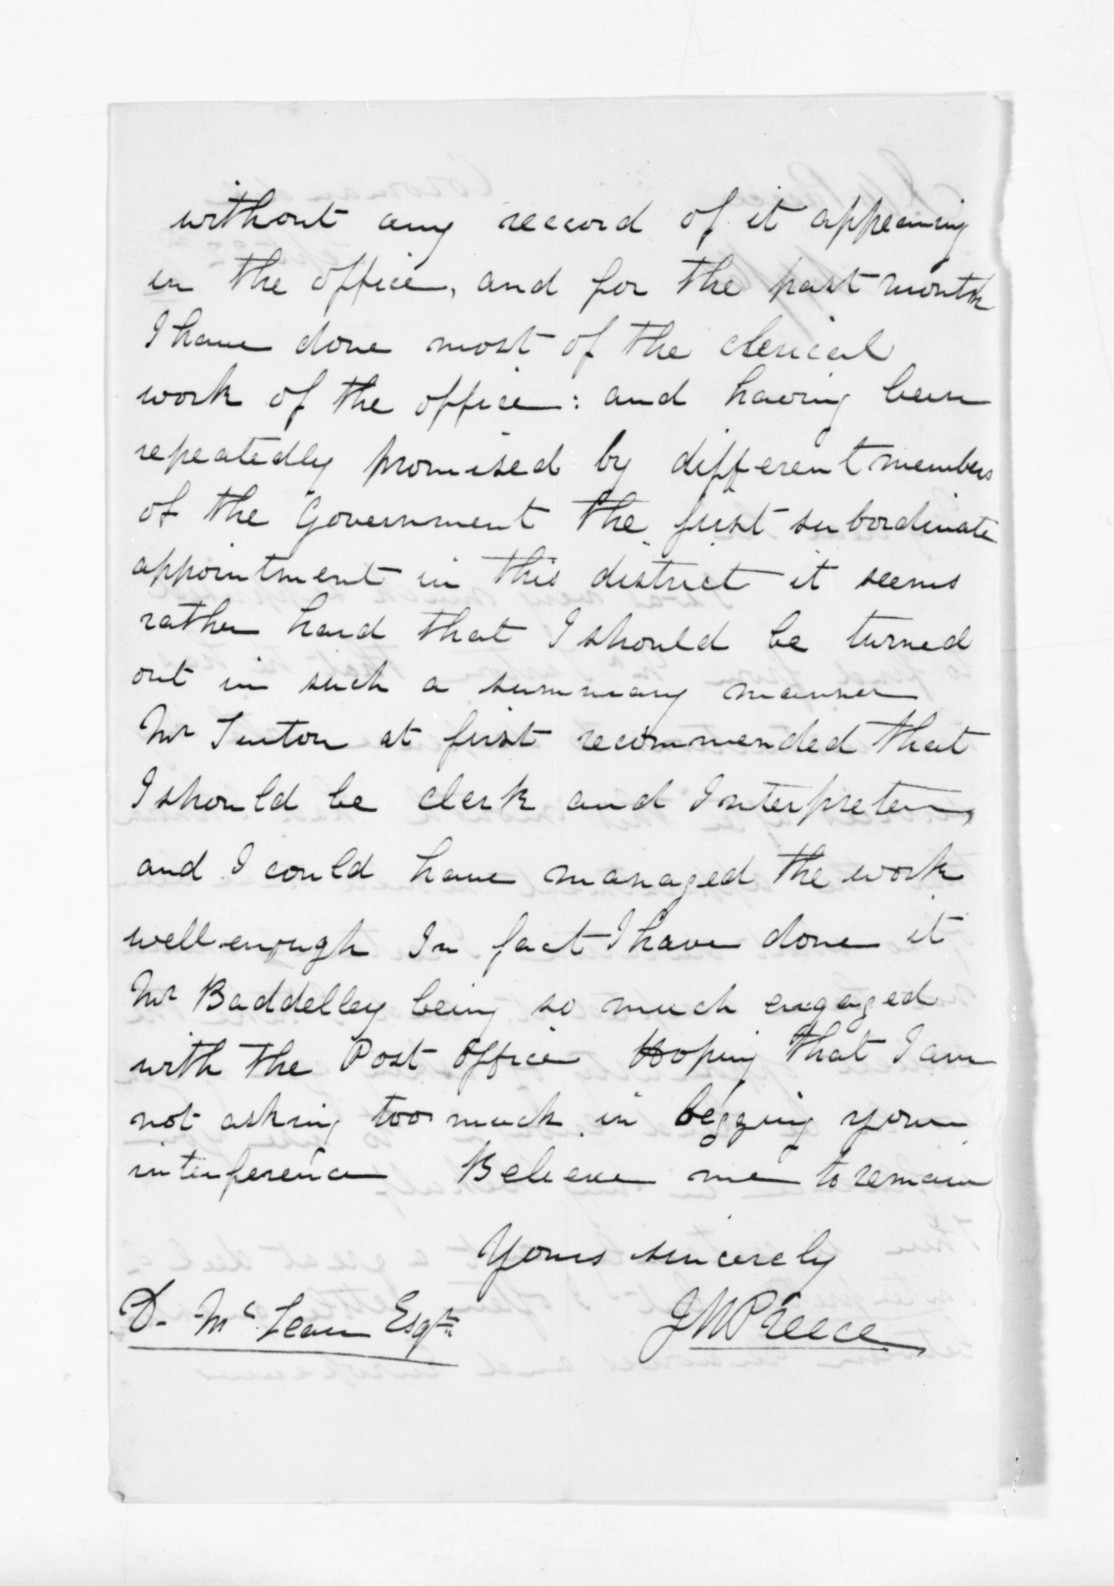 without any reccord of it appearing
in the office, and for the past month
I have done most of the clerical
work of the office: and having been
repeatedly promised by different members
of the Government the "first subordinate
appointment in this district it seems
rather hard that I should be turned
out in such a summary manner
Mr Turton at first recommended that
I should be clerk and Interpreter,
and I could have managed the work
well enough In fact I have done it
Mr Baddelley being so much engaged
with the Post Office Hoping that I am
not asking too much in begging your
interference Believe me to remain
Yours sincerely
D. McLean Esqre
JWPreece